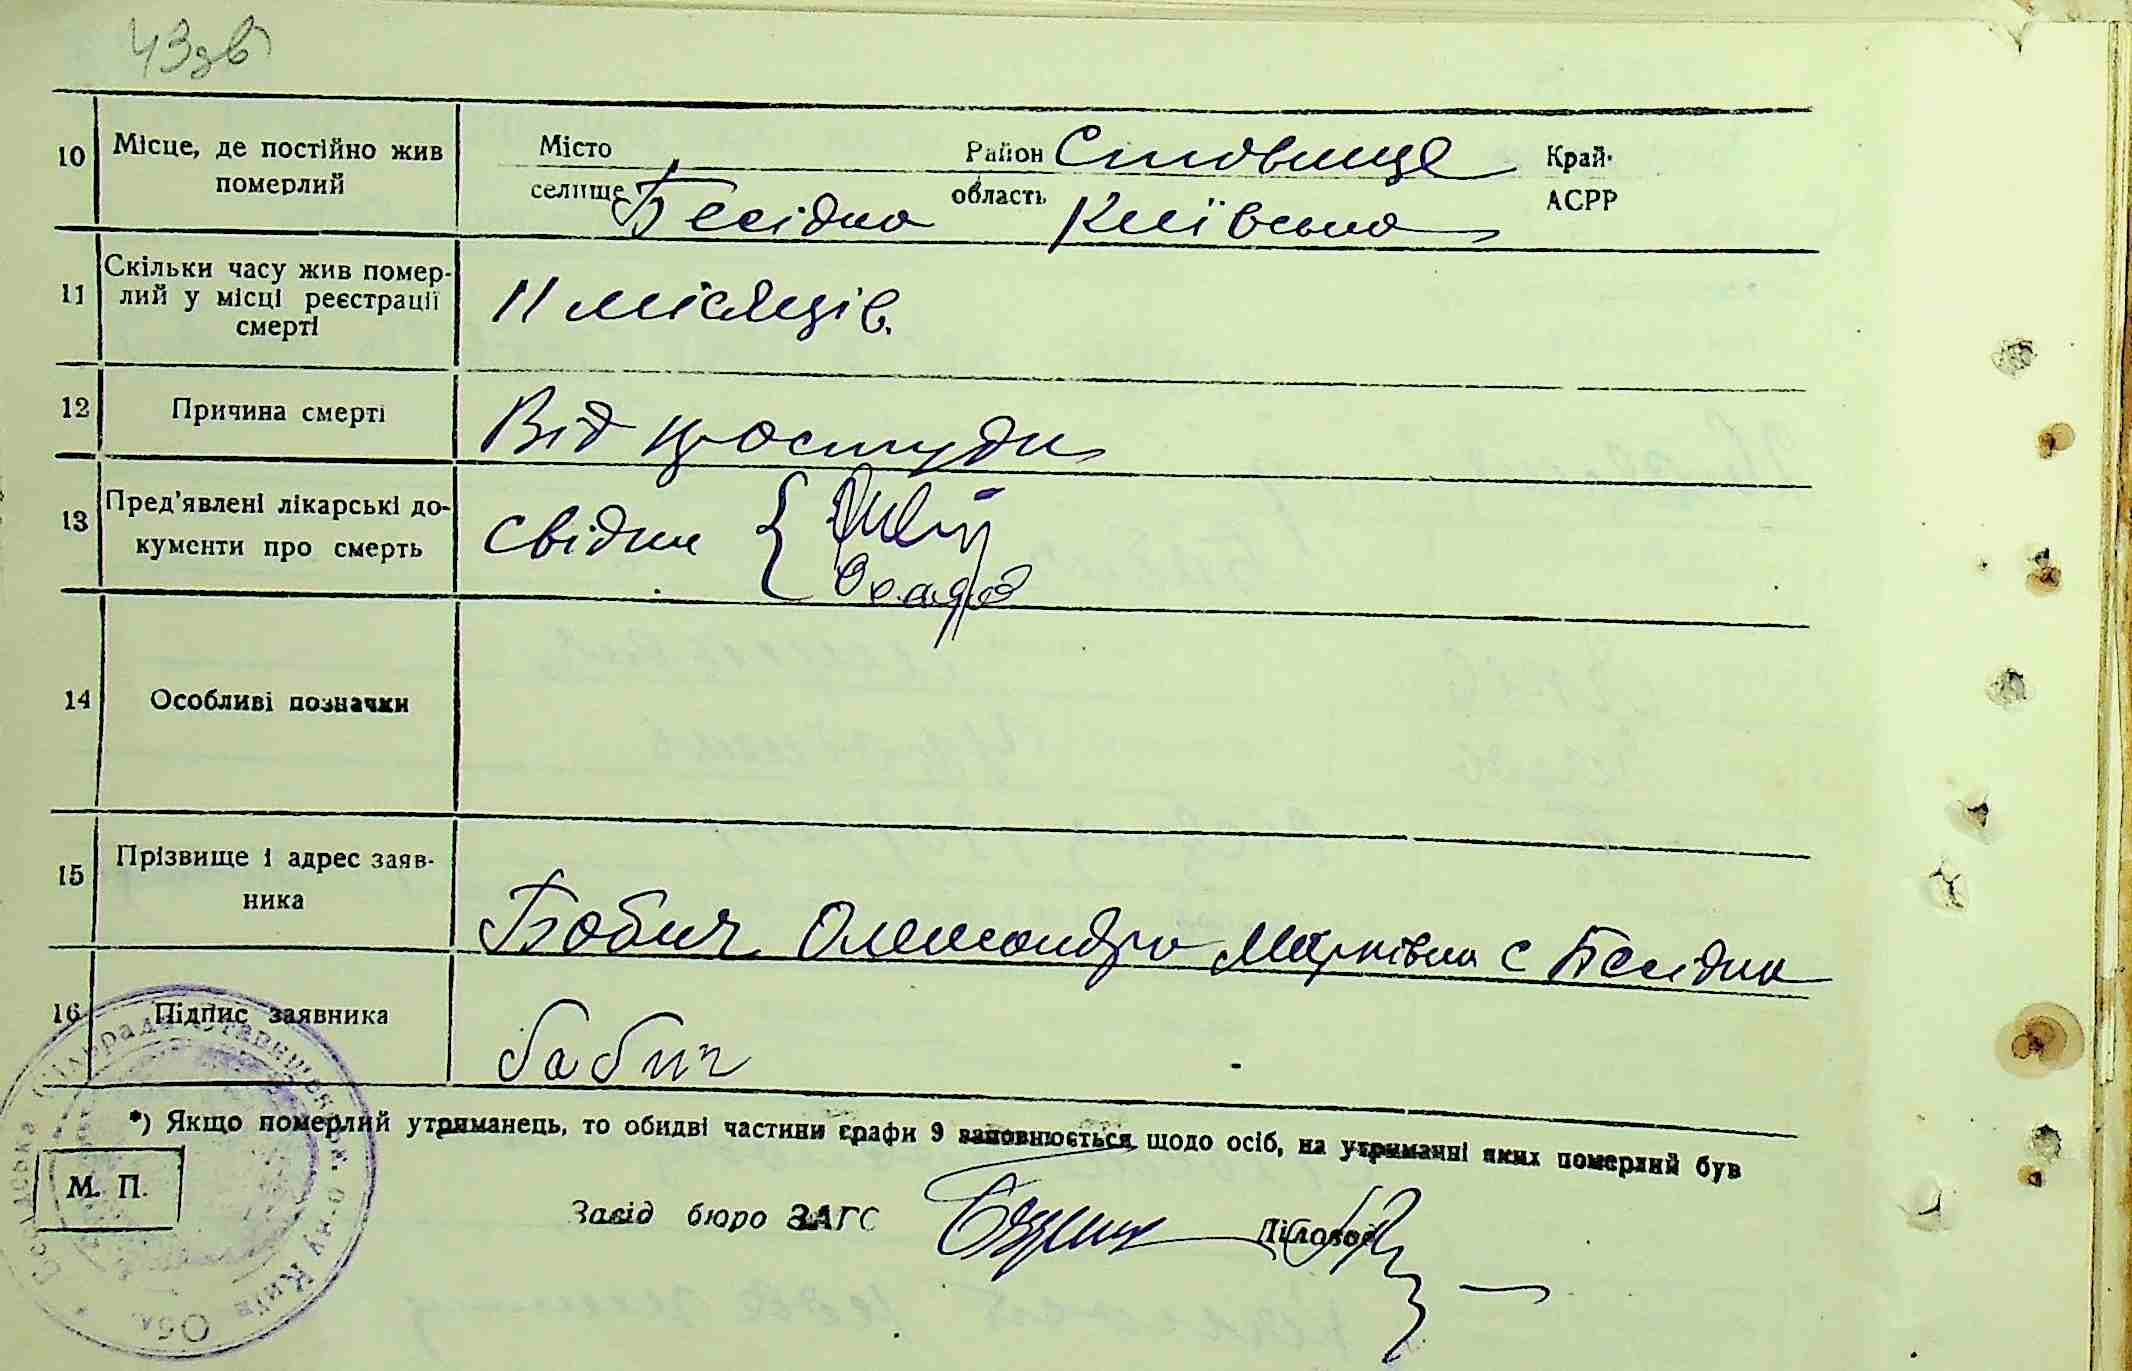 43зв
10 Місце, де постійно жив Місто Район Ставище Край
померлий селище Бесідка область Київська АСРР
Скільки часу жив помер-
11 лий у місці реєстрації 11 місяців.
смерті
12 Причина смерті Від простуди
Пред'явлені лікарські до-
13 кументи про смерть свідки
14 Особливі позначки
Прізвище і адрес заяв-
15 ника Бабич Олександра Марківна с Бесідка
16 Підпис заявника бабич
*) Якщо померлий утриманець, то обидві частини графи 9 заповнюється щодо осіб, на утриманні яких померлий був
М. П.
Завід бюро ЗАГС Діловод
сільрада Ставищенськ. р-ну Київ Обл.